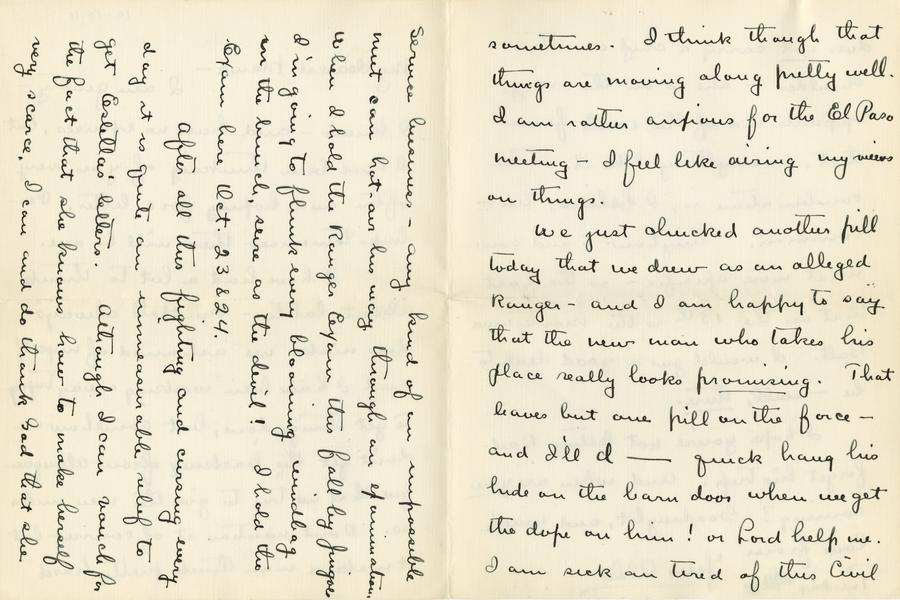 sometimes. I think though that
things are moving along pretty well.
I am rather anxious for the El Paso
meeting - I feel like airing my views
on things.
We just chucked another pill
today that we drew as an alleged
Ranger - and I am happy to say
that the new man who takes his
place really looks promising. That
leaves but one pill on the force -
and I'll d—— quick hang his
hide on the barn door when we get
the dope on him! or Lord help me.
I am sick an tired of this Civil
Service business - any kind of an impossible
mutt can hot-air his way through an examination.
When I hold the Ranger Exam this fall by Jingoes
I'm going to flunk every blooming windbag
in the bunch, sure as the devil! I hold the
Exam here Oct. 23 & 24.
After all this fighting and cursing every
day it is quite an immeasurable relief to
get Estella's letters. Although I can vouch for
the fact that she knows how to make herself
very scarce, I can and do thank God that she